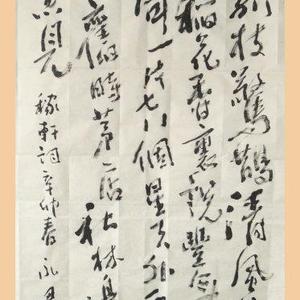 別枝驚鵲清風
稻花香裏說豐年
一片七八個星天外
舊時茅店社林
稼軒詞辛卯春永